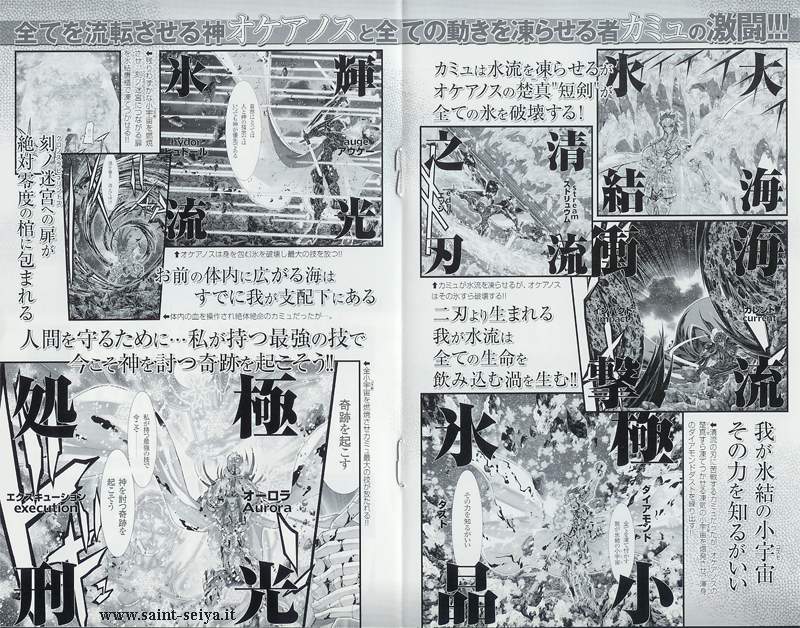 全てを流転させる神オケアノスと全ての動きを凍らせる者カミュの激闘!!!
カミュは水流を凍らせるが
オケアノスの楚真"短剣"が
全ての氷を破壊する!
大海
氷結
清流
之刃
stream
ストリュウム
⬆カミュが水流を凍らせるが、オケアノス
はその氷すら破壊する!!
二刃より生まれる
我が水流は
全ての生命を
飲み込む渦を生む!!
海流
衝撃
カレント
current
インパクト
impact
我が氷結の小宇宙
その力を知るがいい
極小
氷晶
ダイアモンド
ダスト
その力を知るがいい
輝光
氷流
auge
アウゲー
hydor
ヒュドール
⬆オケアノスは身を包む氷を破壊し最大の技を放つ!!
刻ノ迷宮への扉が
絶対零度の棺に包まれる
お前の体内に広がる海は
すでに我が支配下にある
⬅体内の血を操作され絶体絶命のカミュだったが…。
人間を守るために…私が持つ最強の技で
今こそ神を討つ奇跡を起こそう!!
⬅全小宇宙を燃焼させカミュ最大の技が放たれる!!
奇跡を起こす
極光
処刑
オーロラ
Aurora
エクスキューション
execution
私が持つ最強の技で
今こそ
神を討つ奇跡を
起こそう
www.saint-seiya.it